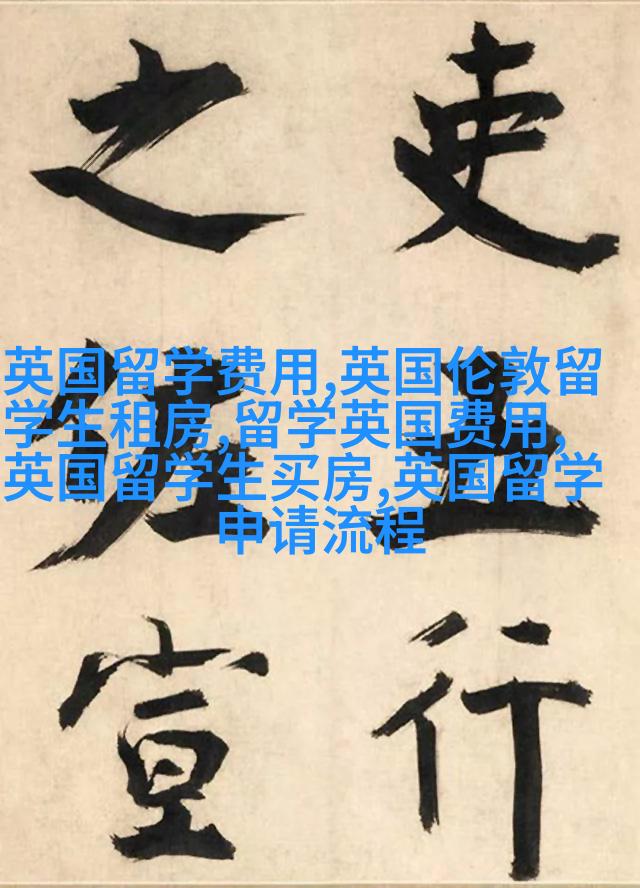 英国留学费用,英国伦敦留
学生租房,留学英国费用,
英国留学生买房,英国留学
申请流程
吏行
之宣